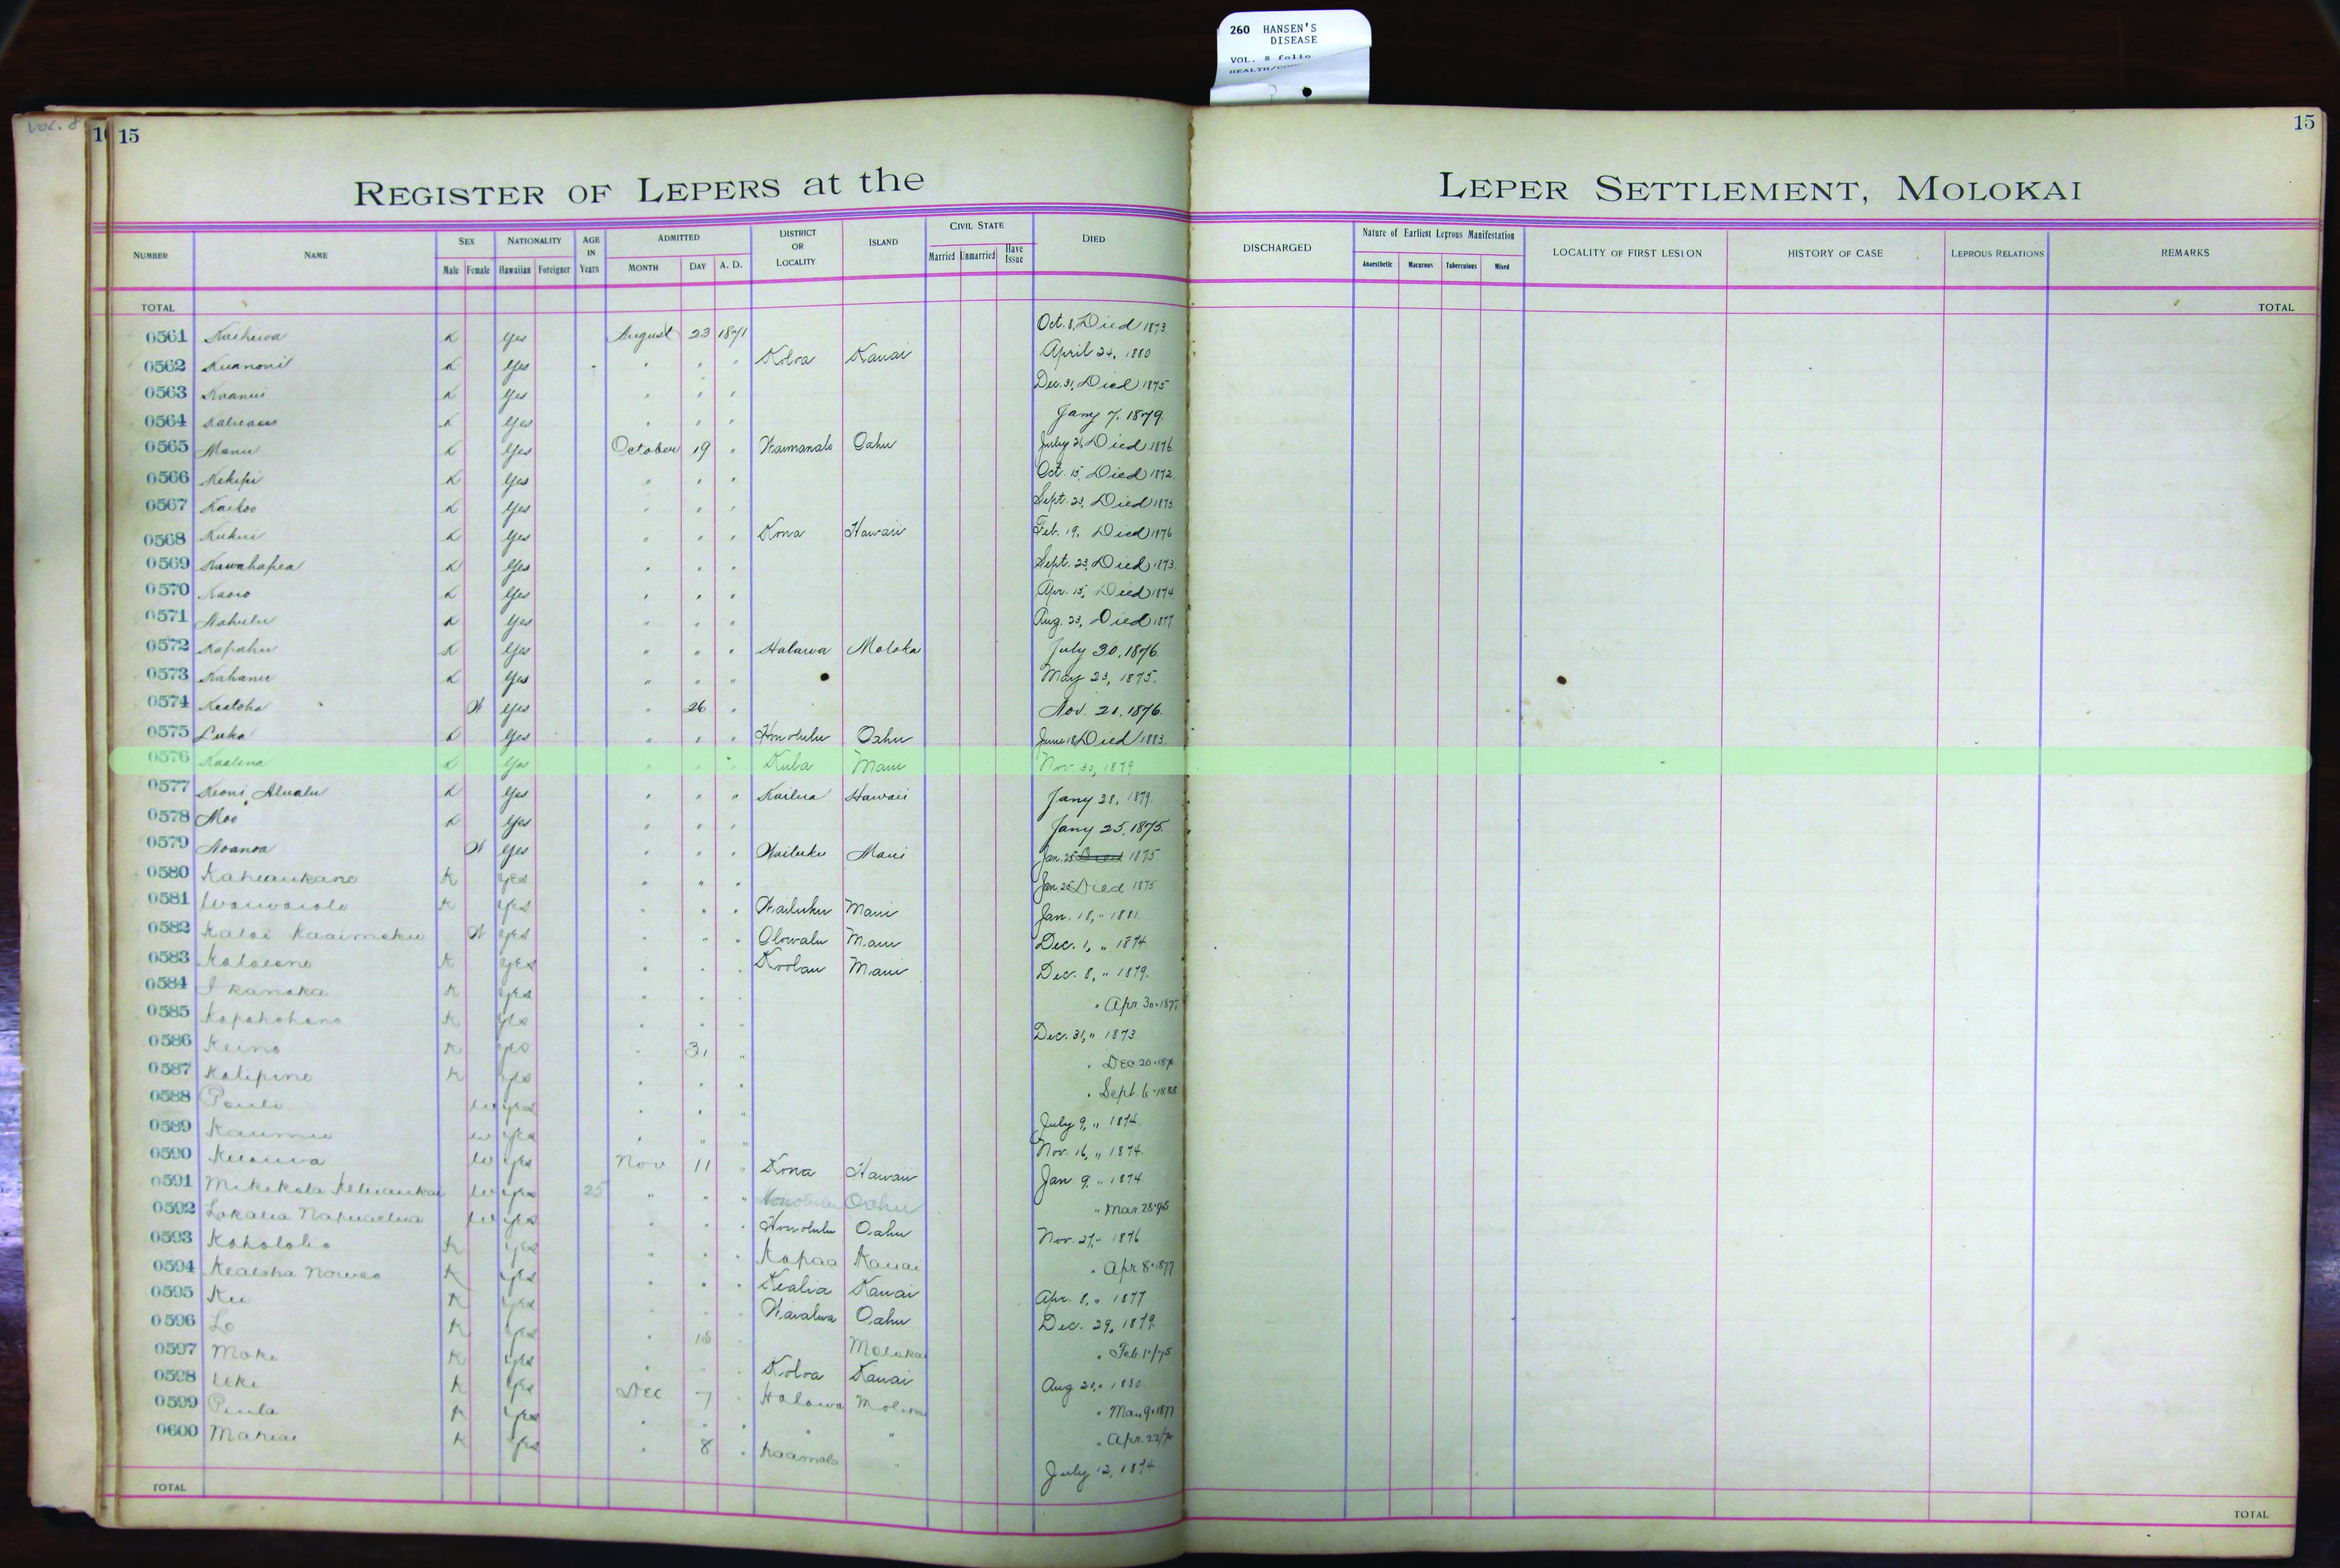 260 HANSEN'S
DISEASE
VOL. 8 folio
VOL. 8
15
15
REGISTER OF LEPERS at the LEPER SETTLEMENT, MOLOKAI
NUMBER NAME SEX Male Female NATIONALITY Hawaiian Foreigner AGE IN Years ADMITTED MONTH DAY A. D. DISTRICT OR LOCALITY ISLAND CIVIL STATE Married Unmarried Have Issue DIED DISCHARGED Nature of Earliest Leprous Manifestation Anaesthetic Macurous Tuberculous Mixed LOCALITY OF FIRST LESION HISTORY OF CASE LEPROUS RELATIONS REMARKS
TOTAL TOTAL
0561 K Yes August 23 1871 Oct. 8, Died 1873
0562 Kuanonii K Yes " " " Koloa Kauai April 24, 1880
0563 Koanui K Yes " " " Dec. 31, Died 1875
0564 K Yes " " " Jany 7, 1879.
0565 Manu K Yes October 19 " Waimanalo Oahu July 21, Died 1876
0566 Kekipi K Yes " " " Oct. 15, Died 1872
0567 Kaikoo K Yes " " " Sept. 23, Died 1873
0568 Kukui K Yes " " " Kona Hawaii Feb. 19, Died 1876
0569 Kawahapea K Yes " " " Sept. 23, Died 1873
0570 Kaoio K Yes " " " Apr. 15, Died 1874
0571 Nahulu K Yes " " " Aug. 23, Died 1877
0572 Kapahu K Yes " " " Halawa Moloka July 30, 1876
0573 Kahanu K Yes " " " May 23, 1875.
0574 Kealoha W Yes " 26 " Nov. 21, 1876.
0575 Luka K Yes " " " Honolulu Oahu June 18 Died 1883.
0576 Kaalena K Yes " " " Kula Maui Nov. 30, 1879
0577 Keoni Alualu K Yes " " " Kailua Hawaii Jany 28, 1879.
0578 Moo K Yes " " " Jany 25, 1875.
0579 Noanoa W Yes " " " Wailuku Maui Jan. 25 Died 1875
0580 Kaheaukano K Yes " " " Jan. 25 Died 1875
0581 Waiwaiole K Yes " " " Wailuku Maui Jan. 18, " 1881
0582 Kalai Kaaimoku W Yes " " " Olowalu Maui Dec. 1, " 1874
0583 K Yes " " " Koolau Maui Dec. 8, " 1879.
0584 I kanaka K Yes " " " " Apr 30-187
0585 Kapahohano K Yes " " " Dec. 31, " 1873
0586 Keino K Yes " 31 " " Dec 20-187
0587 Kalipine K Yes " " " " Sept 6-1888
0588 Pauli W Yes " " " July 9, " 1874
0589 Kaumu W Yes " " " Nov. 16, " 1874.
0590 W Yes Nov 11 " Kona Hawaii Jan 9, " 1874
0591 Mikikola W Yes 25 " " " Honolulu Oahu " Mar. 28-95
0592 Lokalia Napuaelua W Yes " " " Honolulu Oahu Nov. 27, " 1876
0593 Kohololio K Yes " " " Kapaa Kauai " Apr 8-1877
0594 Kealoha Noweo K Yes " " " Kealia Kauai Apr. 8, " 1877
0595 Ku K Yes " " " Waialua Oahu Dec. 29, 1879
0596 Lo K Yes " 18 " Molokai " Feb 10/75
0597 Moke K Yes " " " Koloa Kauai Aug 20, " 1880
0598 Uki K Yes Dec 7 " Halawa Molokai " Mar 9-1877
0599 Piula K Yes " " " " " " Apr. 22/74
0600 Mahiai K Yes " 8 " Kaamola " July 12, 1874
TOTAL TOTAL